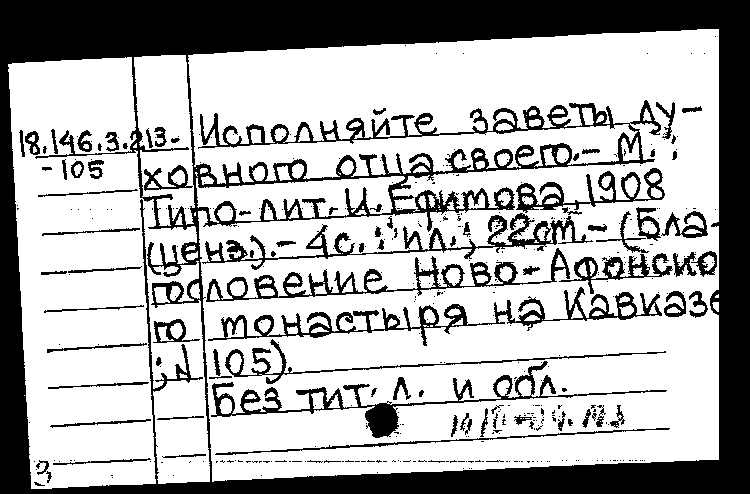 18.146.3.213- Исполняйте заветы ду-
-105 ховного отца своего.- М. :
Типо-лит. И. Ефимова, 1908
(ценз.).- 4с. : ил.; 22см.- (Бла-
гословение Ново-Афонско
го монастыря на Кавказе
; N 105).
Без тит. л. и обл.